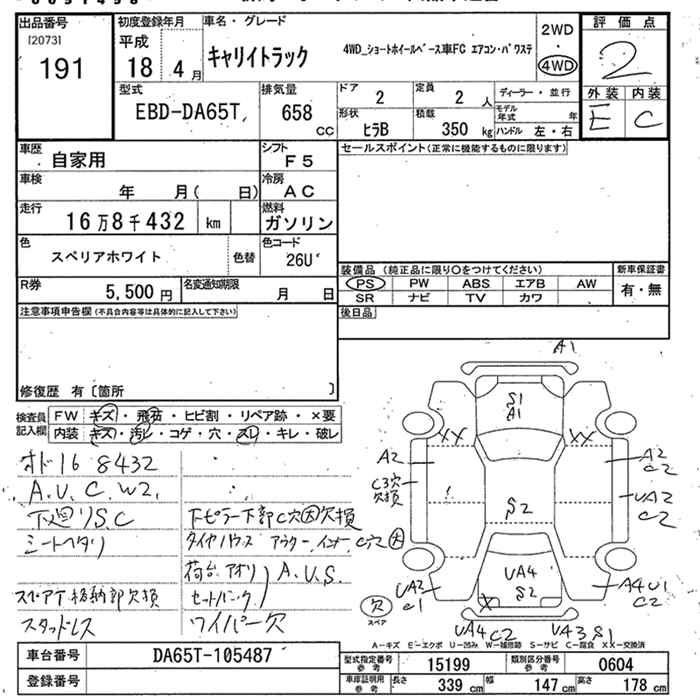 出品番号
(20731
191
初度登録年月
平成
18 4 月
車名・グレード
キャリイトラック
4WD_ショートホイールベース車FC エアコン・パワステ
2WD
・
4WD
評価点
2
外装 内装
E C
型式
EBD-DA65T
排気量
658
CC
ドア
2
定員
2 人
ディーラー・並行
モデル年式 年
形状
ヒラB
積載
350 kg
ハンドル 左・右
車歴
自家用
シフト
F5
セールスポイント(正常に機能するものに限ります)
車検
年 月( 日)
冷房
AC
走行
16万8千432 km
燃料
ガソリン
色
スペリアホワイト
色替
色コード
26U
装備品 (純正品に限り○をつけてください)
新車保証書
PS PW ABS エアB AW
有・無
SR ナビ TV カワ
R券
5,500 円
名変通知期限
月 日
後日品
注意事項申告欄(不具合内容等は具体的に記入して下さい)
修復歴 有〔箇所 〕
検査員
記入欄
FW キズ・飛石・ヒビ割・リペア跡・×要
内装 キズ・汚レ・コゲ・穴・スレ・キレ・破レ
オド16 8432
A.U.C.W2.
下廻りS.C
下ピラー下部C穴大欠損
シートヘタリ
タイヤハウス アウター.インナーC穴大
荷台.アオリ
A.U.S.
スペアT格納部欠損
セットバック
スタッドレス
ワイパー欠
A1
S1
A1
XX
XX
A2
A2
C2
C3穴
欠損
UA2
C2
S2
UA4
S2
X
UA2
C1
A4U1
C2
欠
スペア
UA4 C2
UA3 S1
A-キズ E-エクボ U-凹み W-補修跡 S-サビ C-腐食 XX-交換済
車台番号
DA65T-105487
登録番号
型式指定番号
参考
15199
類別区分番号
参考
0604
車庫証明用
参考
長さ
339 cm
幅
147 cm
高さ
178 cm